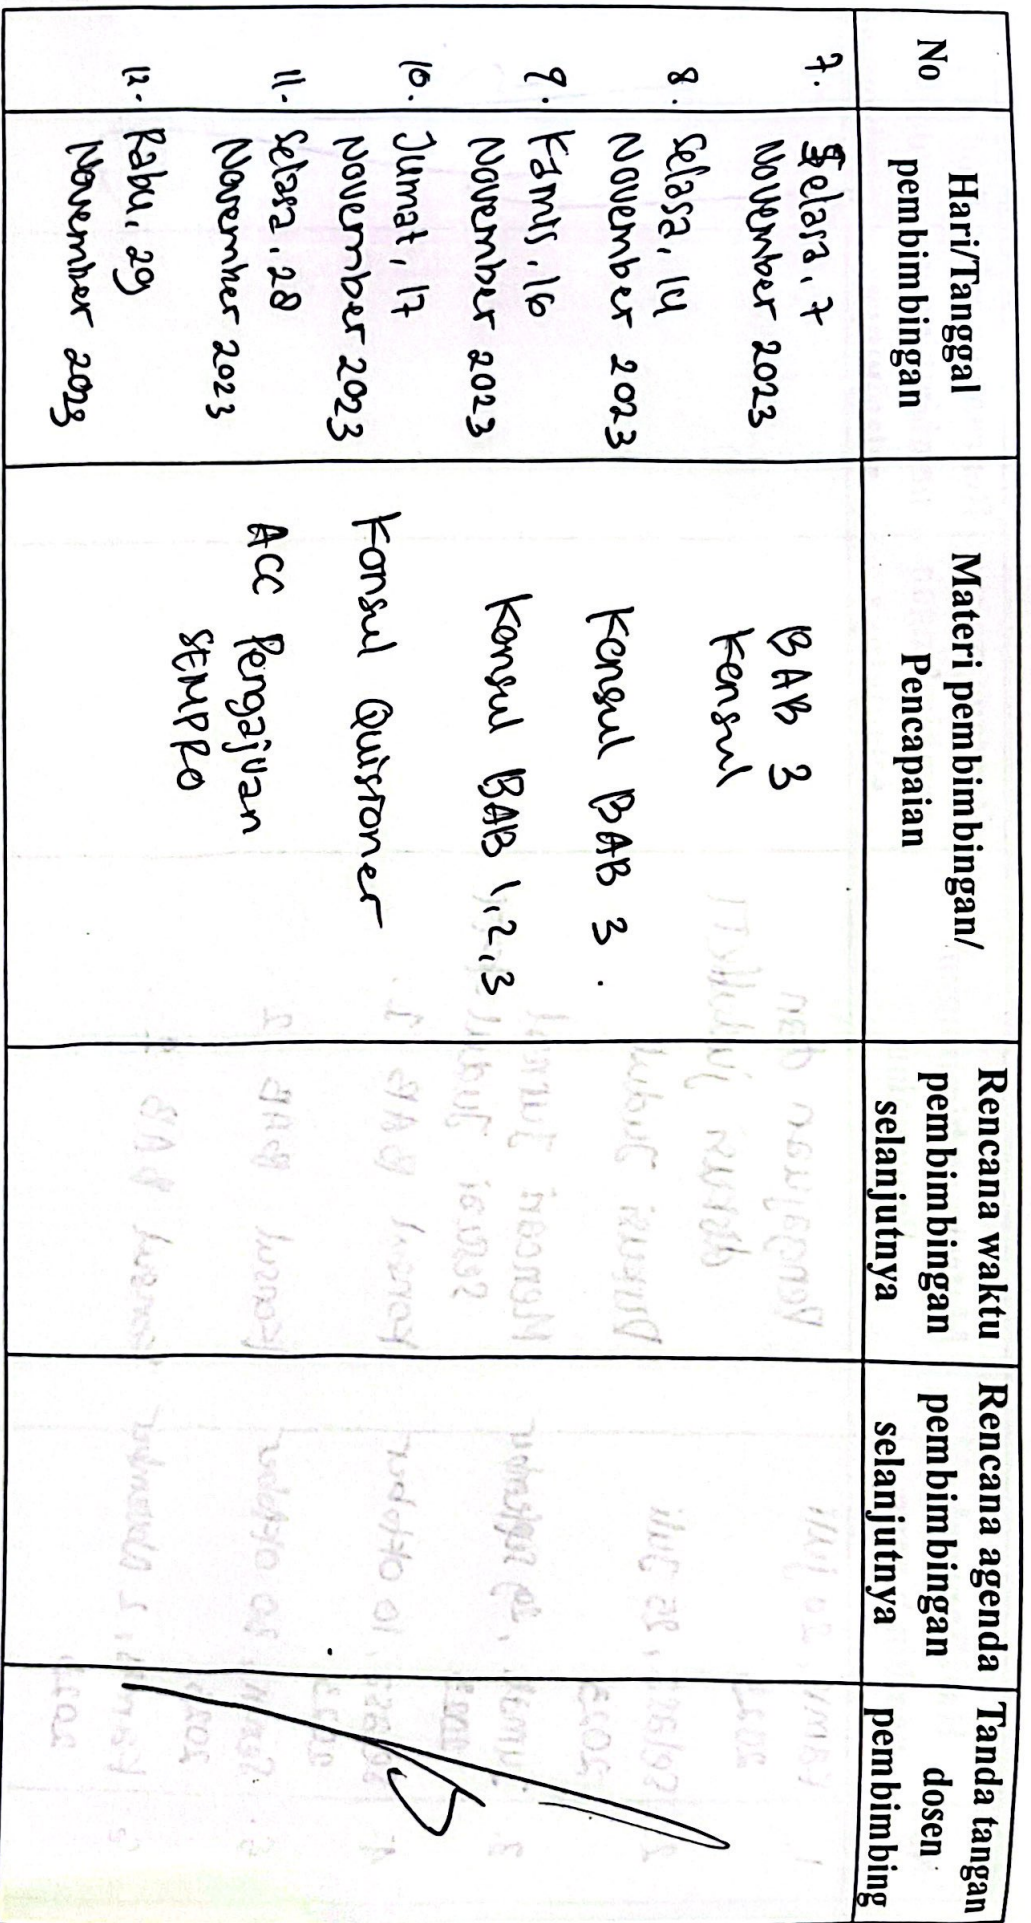 No
Hari/Tanggal
pembimbingan
Materi pembimbingan/
Pencapaian
Rencana waktu
pembimbingan
selanjutnya
Rencana agenda
pembimbingan
selanjutnya
Tanda tangan
dosen
pembimbing
7. Selasa, 7
November 2023
BAB 3
Konsul
8. Selasa, 14
November 2023
Konsul BAB 3.
9. Kamis, 16
November 2023
Konsul BAB 1,2,3
10. Jumat, 17
November 2023
Konsul Quisioner
11. Selasa, 28
November 2023
ACC Pengajuan
SEMPRO
12. Rabu, 29
November 2023